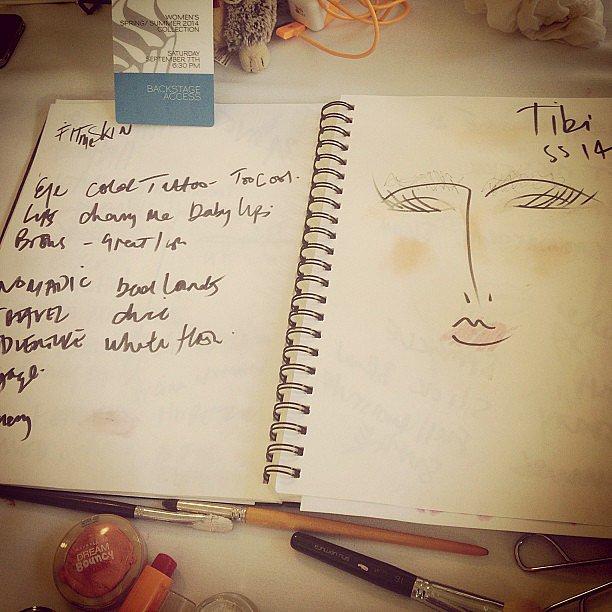 WOMEN'S
SPRING/SUMMER 2014
COLLECTION
SATURDAY
SEPTEMBER 7TH
6:30 PM
BACKSTAGE
ACCESS
FIT ME SKIN
Eye Color Tattoo - Too Cool.
Lips Baby Lips
Brows - Great
NOMADIC bad lands
TRAVEL chic
Tibi
SS 14
DREAM
Bouncy